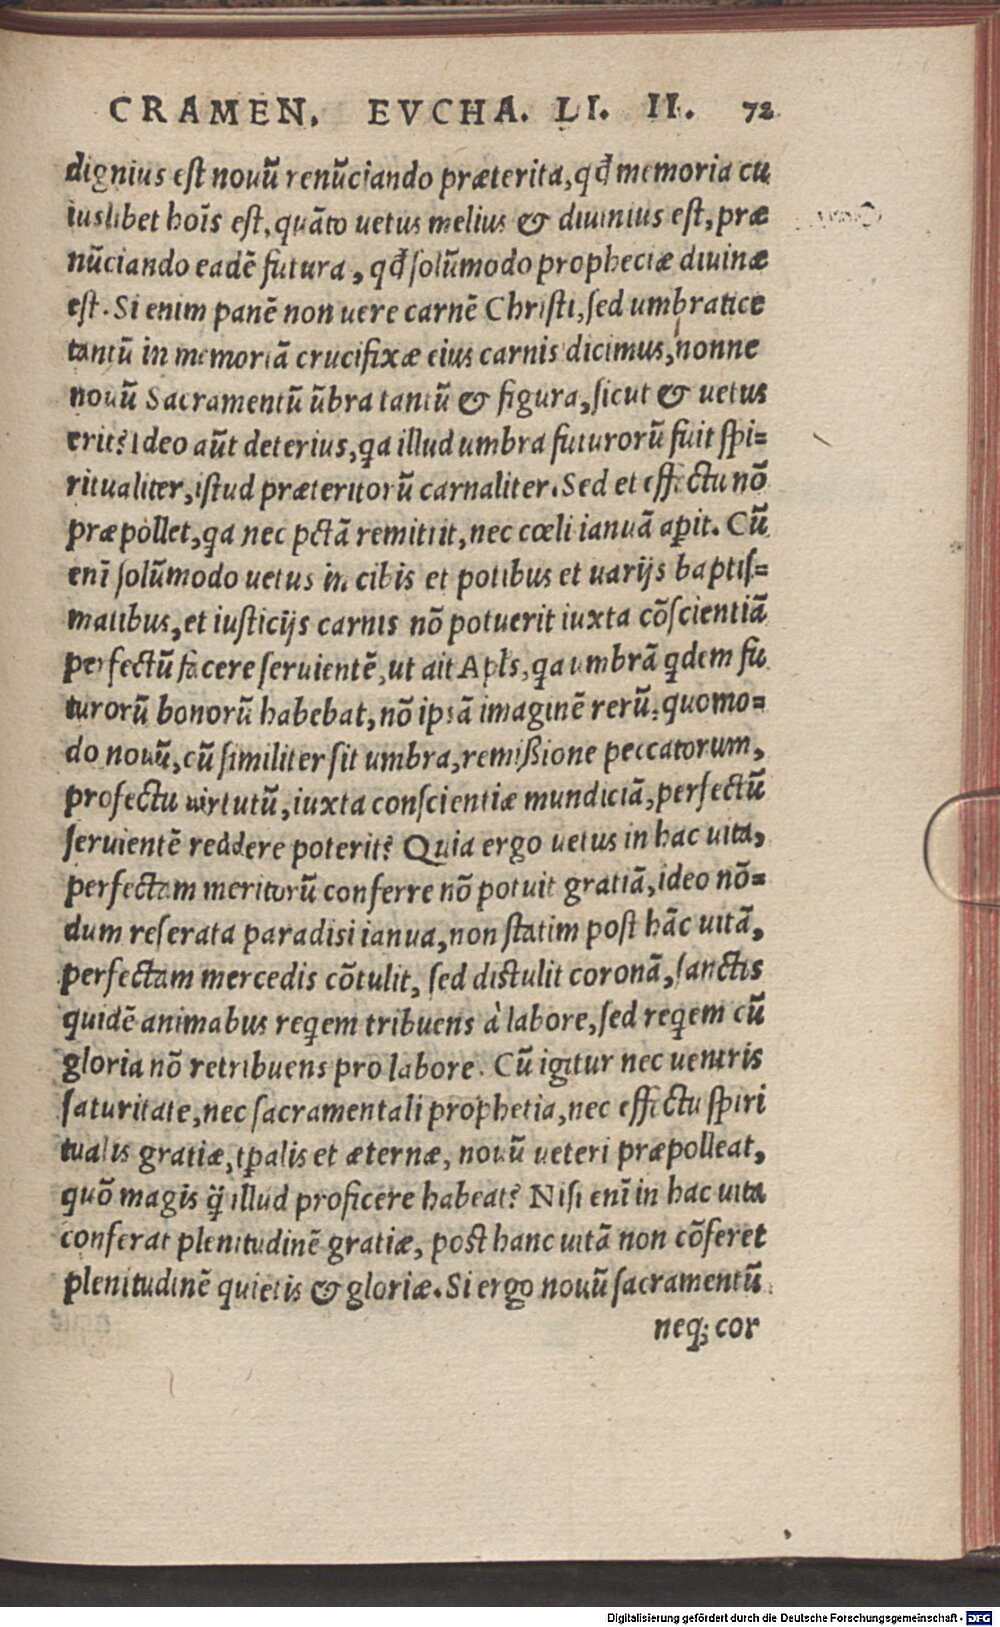 CRAMEN. EVCHA. LI. II. 72
dignius est nouū renūciando præterita, qđ memoria cu
iuslibet hoīs est, quāto uetus melius & diuinius est, præ
nūciando eadē futura, qđ solūmodo propheciæ diuinæ
est. Si enim panē non uere carnē Christi, sed umbratice
tantū in memoriā crucifixæ eius carnis dicimus, nonne
nouū Sacramentū ūbra tantū & figura, sicut & uetus
erit? Ideo aūt deterius, qa illud umbra futurorū fuit spi=
ritualiter, istud præteritorū carnaliter. Sed et effectu nō
præpollet, qa nec pctā remittit, nec cœli ianuā apit. Cū
enī solūmodo uetus in cibis et potibus et uarijs baptis=
matibus, et iusticijs carnis nō potuerit iuxta cōscientiā
perfectū facere seruientē, ut ait Apls, qa umbrā qdem fu
turorū bonorū habebat, nō ipsā imaginē rerū, quomo=
do nouū, cū similiter sit umbra, remißione peccatorum,
profectu uirtutū, iuxta conscientiæ mundiciā, perfectū
seruientē reddere poterit? Quia ergo uetus in hac uita,
perfectam meritorū conferre nō potuit gratiā, ideo nō=
dum reserata paradisi ianua, non statim post hāc uitā,
perfectam mercedis cōtulit, sed distulit coronā, sanctis
quidē animabus reqem tribuens à labore, sed reqem cū
gloria nō retribuens pro labore. Cū igitur nec uentris
saturitate, nec sacramentali prophetia, nec effectu spiri
tualis gratiæ, tpalis et æternæ, nouū ueteri præpolleat,
quō magis q̄ illud proficere habeat? Nisi enī in hac uita
conferat plenitudinē gratiæ, post hanc uitā non cōferet
plenitudinē quietis & gloriæ. Si ergo nouū sacramentū
neq; cor
Digitalisierung gefördert durch die Deutsche Forschungsgemeinschaft - DFG